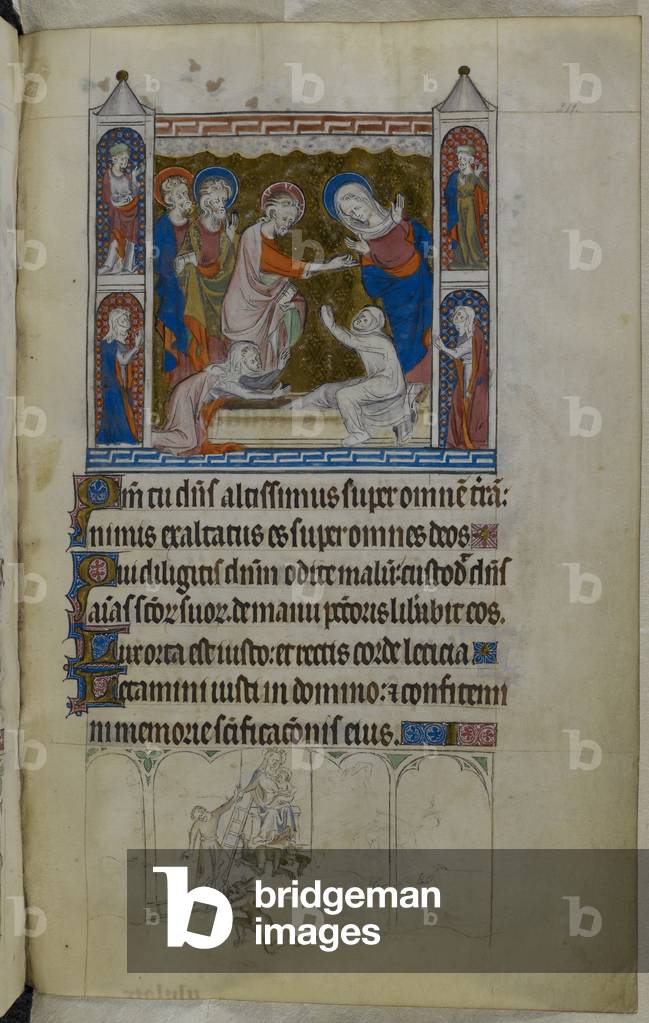 211.
Qm̄ tu dn̄s altissimus super omnē trā:
nimis exaltatus es super omnes deos
Qui diligitis dn̄m odite malū: custod dn̄s
aīas scōꝝ suoꝝ. de manu pctōris libabit eos.
Lux orta est iusto: et rectis corde leticia
Letamini iusti in domino: ⁊ confitemi
ni memorie scīficacōnis eius.
b bridgeman
images